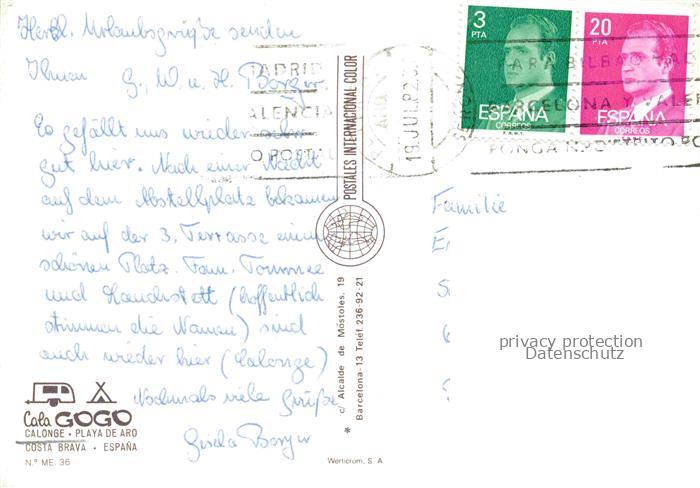 Herzl. Urlaubsgrüße senden
Ihnen G., W. u. H. Borger.
Es gefällt uns wieder sehr
gut hier. Nach einer Nacht
auf dem Abstellplatz bekamen
wir auf der 3. Terrasse einen
schönen Platz. Fam.
und (hoffentlich
stimmen die Namen) sind
auch wieder hier (Calonge)
Nochmals viele Grüße
Gisela Borger
Cala GOGO
CALONGE • PLAYA DE ARO
COSTA BRAVA • ESPAÑA
N.º ME. 36
POSTALES INTERNACIONAL COLOR
c/ Alcalde de Móstoles, 19
Barcelona-13 Teléf. 236-92-21
*
Werticrom, S. A.
3
PTA
ESPAÑA
CORREOS
F.N.M.T.
20
PTA
ESPAÑA
CORREOS
MADRID
VALENCIA
O POSTAL
19 JUL 82
PARA BILBAO MADRID
BARCELONA Y VALENCIA
PONGA Nº DISTRITO POSTAL
Familie
privacy protection
Datenschutz